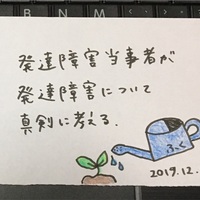 発達障害当事者が
発達障害について
真剣に考る.
ふく
2019.12.